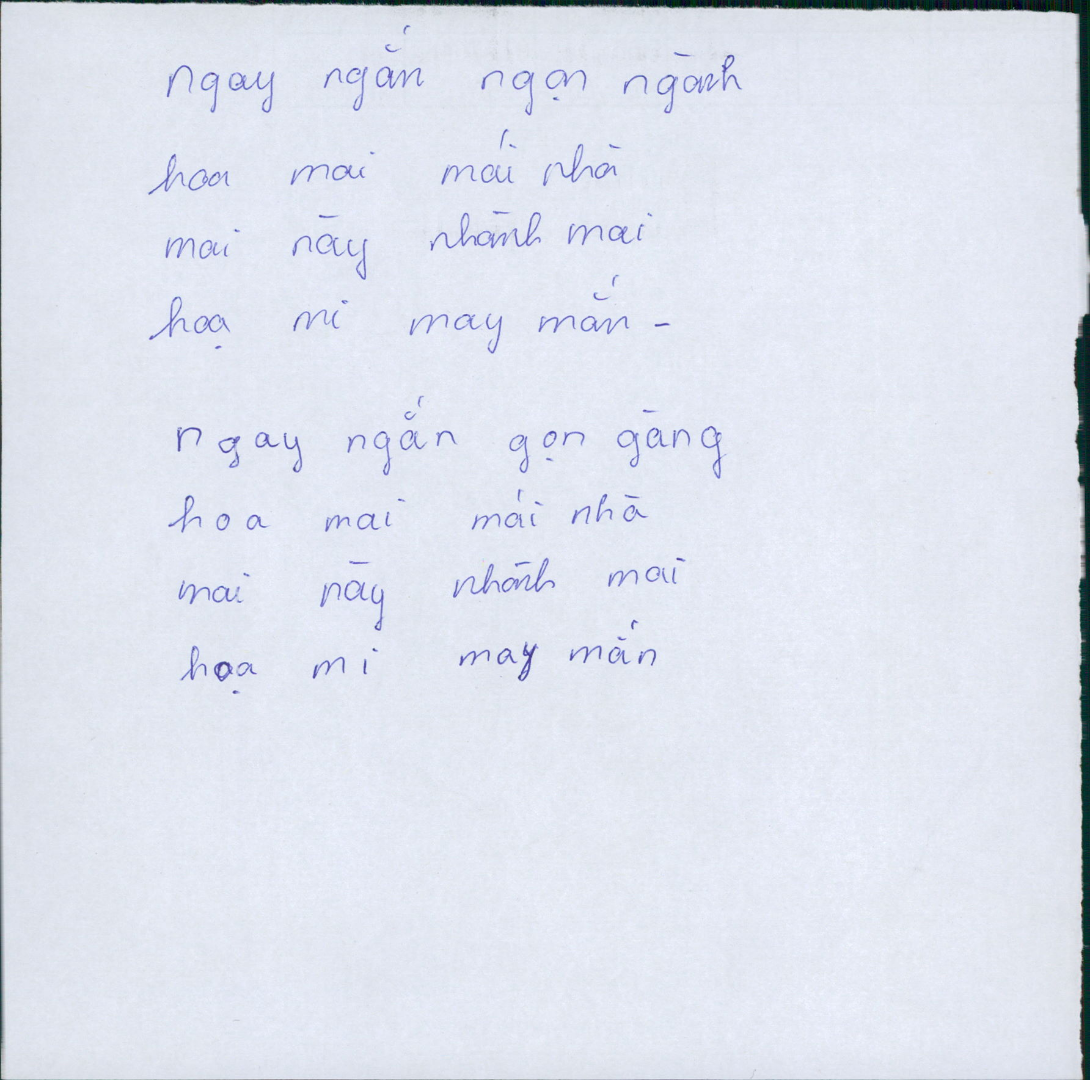 ngay ngắn ngọn ngành
hoa mai mái nhà
mai này nhành mai
hoạ mi may mắn -
ngay ngắn gọn gàng
hoa mai mái nhà
mai này nhành mai
hoạ mi may mắn